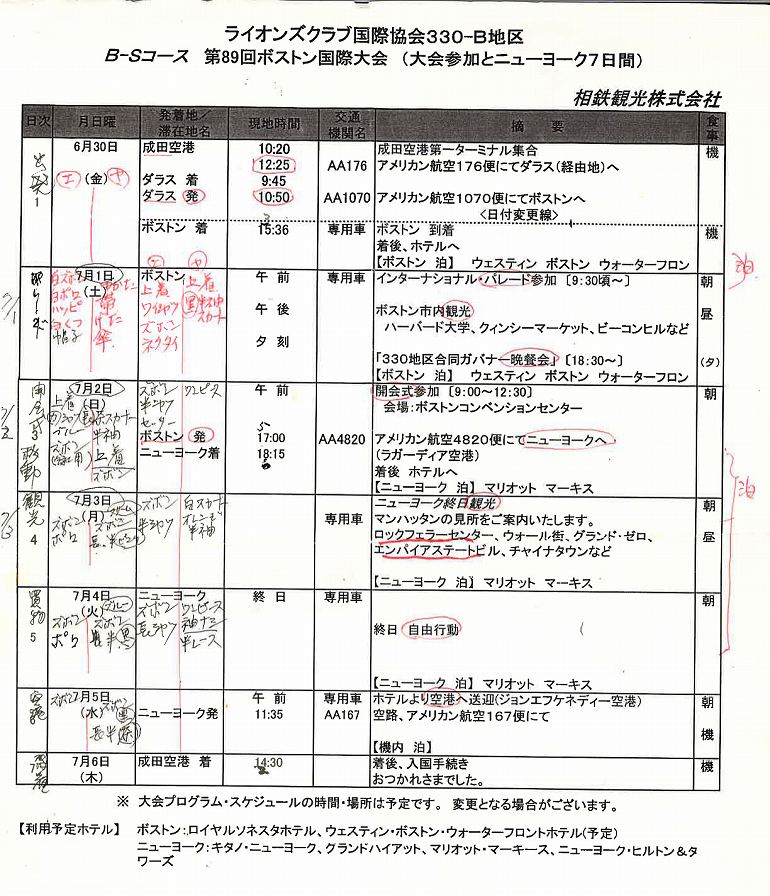 ライオンズクラブ国際協会330-B地区
B-Sコース 第89回ボストン国際大会 (大会参加とニューヨーク7日間)
相鉄観光株式会社
日次 月日曜 発着地/滞在地名 現地時間 交通機関名 摘要 食事
出発 1 6月30日 (金) 成田空港 10:20 成田空港第一ターミナル集合 機
12:25 AA176 アメリカン航空176便にてダラス(経由地)へ
ダラス 着 9:45
ダラス 発 10:50 AA1070 アメリカン航空1070便にてボストンへ
<日付変更線>
ボストン 着 15:36 専用車 ボストン 到着 機
着後、ホテルへ
【ボストン 泊】 ウェスティン ボストン ウォーターフロン
7/1 7月1日 (土) ボストン 午前 専用車 インターナショナル・パレード参加 〔9:30頃~〕 朝
上着
ワイシャツ
ズボン
ネクタイ
上着
半袖
スカート
ハッピ
白くつ
帽子
傘
午後 ボストン市内観光 昼
ハーバード大学、クィンシーマーケット、ビーコンヒルなど
夕刻 「330地区合同ガバナー晩餐会」〔18:30~〕 (夕)
【ボストン 泊】 ウェスティン ボストン ウォーターフロン
泊
7/2 開会式 3 移動 7月2日 (日) ズボン ワンピース 午前 開会式参加 〔9:00~12:30〕 朝
半シャツ
上着
会場:ボストンコンベンションセンター
ボストン 発 17:00 AA4820 アメリカン航空4820便にてニューヨークへ
ニューヨーク着 18:15 (ラガーディア空港)
着後 ホテルへ
【ニューヨーク 泊】 マリオット マーキス
泊
7/3 観光 4 7月3日 (月) ズボン 白スカート 専用車 ニューヨーク終日観光 朝
ズボン
ポロ
半シャツ
オレンジ
半袖
マンハッタンの見所をご案内いたします。
ロックフェラーセンター、ウォール街、グランド・ゼロ、 昼
エンパイアステートビル、チャイナタウンなど
【ニューヨーク 泊】 マリオット マーキス
買物 5 7月4日 (火) ニューヨーク 終日 専用車 朝
ズボン
ポロ
ブルー
ズボン
長シャツ
ワンピース
半レース
終日 自由行動
【ニューヨーク 泊】 マリオット マーキス
7月5日 (水) 午前 専用車 ホテルより空港へ送迎(ジョンエフケネディー空港) 朝
ズボン
ニューヨーク発 11:35 AA167 空路、アメリカン航空167便にて 機
【機内 泊】
7 7月6日 (木) 成田空港 着 14:30 着後、入国手続き 機
おつかれさまでした。
※ 大会プログラム・スケジュールの時間・場所は予定です。 変更となる場合がございます。
【利用予定ホテル】 ボストン:ロイヤルソネスタホテル、ウェスティン・ボストン・ウォーターフロントホテル(予定)
ニューヨーク:キタノ・ニューヨーク、グランドハイアット、マリオット・マーキース、ニューヨーク・ヒルトン&タ
ワーズ